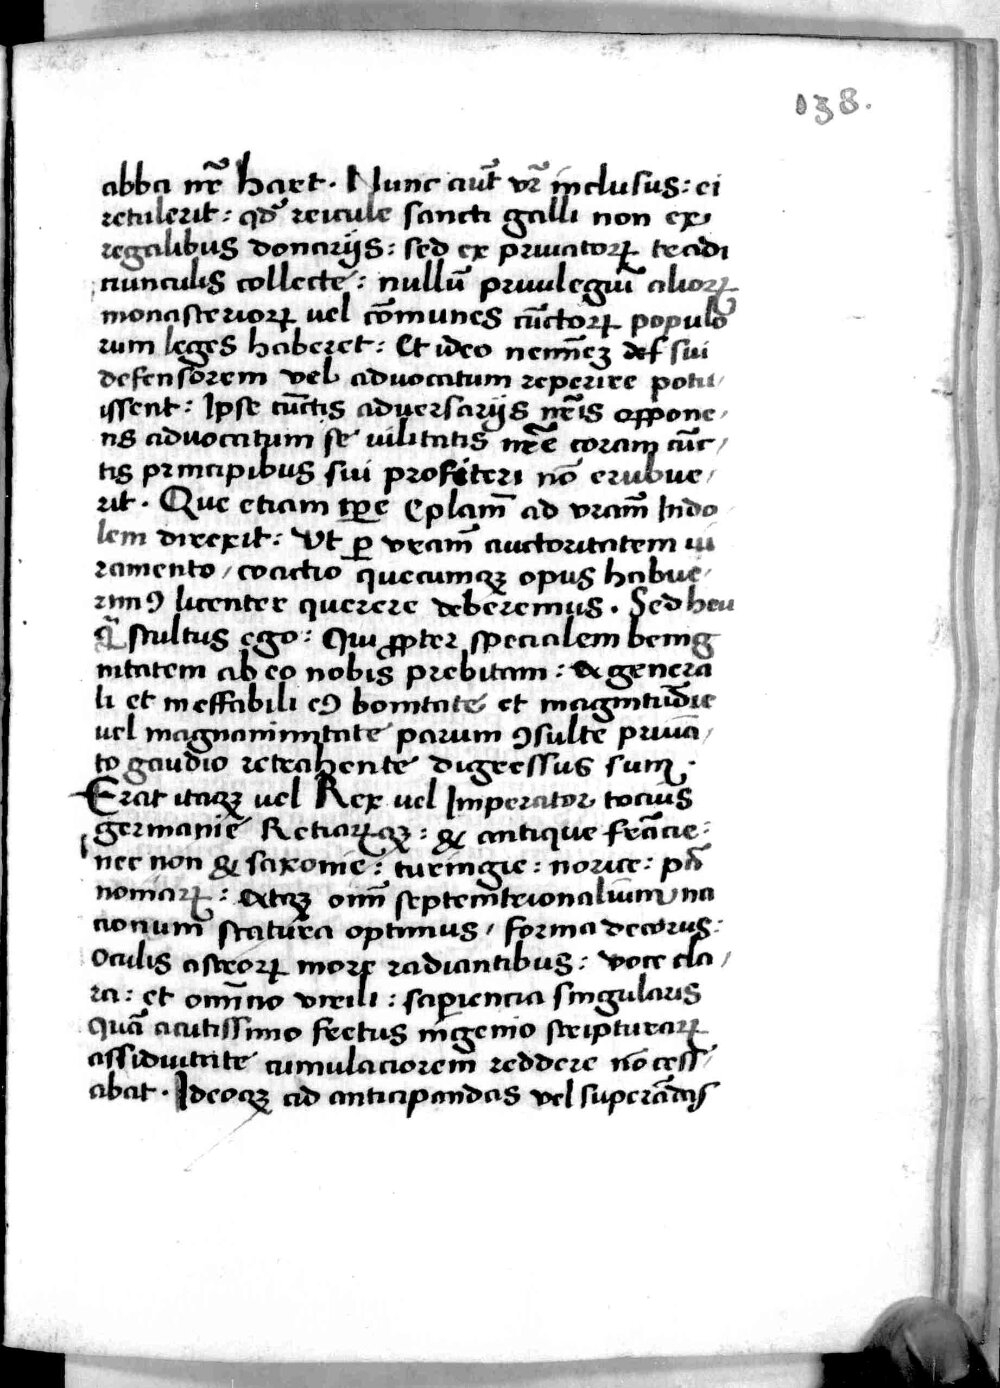 138.
abba nr̄ hart. Nunc aūt vr̄ inclusus: ei
retulerit: qd̄ reicule sancti galli non ex
regalibus donarijs: sed ex priuatorꝝ tradi
ciunculis collecte: nullū priuilegiū aliorꝝ
monasteriorꝝ uel cōmunes cūctorꝝ populo
rum leges haberet: Et ideo neminēꝫ def sui
defensorem vel aduocatum reperire potu/
issent: Ipse cūctis aduersarijs nr̄is oppone/
ns aduocatum se uilitatis nr̄e coram cūc/
tis principibus sui profiteri nō erubue/
rit. Que etiam tꝑe Epl̄am ad vram̄ Indo
lem direxit: Vt ꝑ vram̄ auctoritatem iu
ramento/ coactio quecumqꝫ opus habue/
rimꝰ licenter querere deberemus. Sed heu
qͣ stultus ego: Qui ꝓpter specialem benig
nitatem ab eo nobis prebitam: & genera
li et ineffabili eꝰ bonitate et magnitudīe
uel magnanimitate parum ꝯsulte priuā/
to gaudio retrahente digressus sum.
Erat itaqꝫ uel Rex uel Imperator tocius
germanie Retiarꝝqꝫ: & antique frācie:
nec non & saxonie: turingie: norice: pān
nomarꝝ: atqꝫ oīm septemtrionalium na
cionum statura optimus/ forma decorus:
oculis astrorꝝ more radiantibus: voce cla/
ra: et omīno virili: sapiencia singularis
Quā acutissimo fretus ingenio scripturarꝝ
assiduitate cumulaciorem reddere nō cess/
abat. Ideoqꝫ ad anticipandas vel superādas